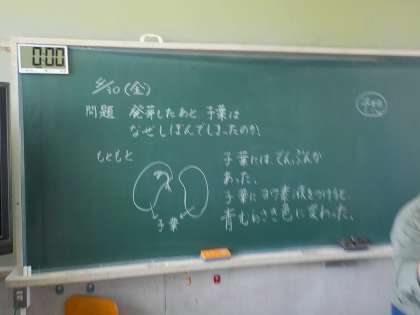 0:00
5/10(金)
問題 発芽したあと 子葉は
なぜしぼんでしまったのか。
もともと
子葉
子葉には でんぷんが
あった。
子葉に ヨウ素液をつけると、
青むらさき色に変わった。